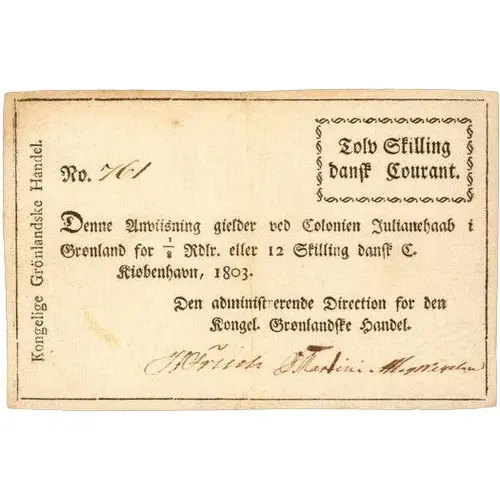 Kongelige Grönlandske Handel.
No. 761
Tolv Skilling
dansk Courant.
Denne Anviisning gielder ved Colonien Julianehaab i
Grønland for 1/8 Rdlr. eller 12 Skilling dansk C.
Kiøbenhavn, 1803.
Den administrerende Direction for den
Kongel. Grønlandske Handel.